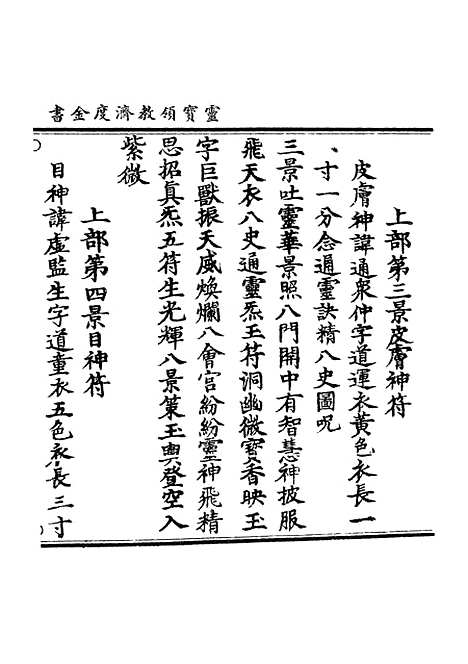 靈寶領教濟度金書
上部第三景皮膚神符
皮膚神諱通衆仲字道運衣黃色衣長一
寸一分念通靈訣精八史圖呪
三景吐靈華景照八門開中有智慧神披服
飛天衣八史通靈炁玉符洞幽微寶香映玉
字巨獸振天威煥爛八會宮紛紛靈神飛精
思招真炁五符生光輝八景策玉輿登空入
紫微
上部第四景目神符
目神諱虛監生字道童衣五色衣長三寸